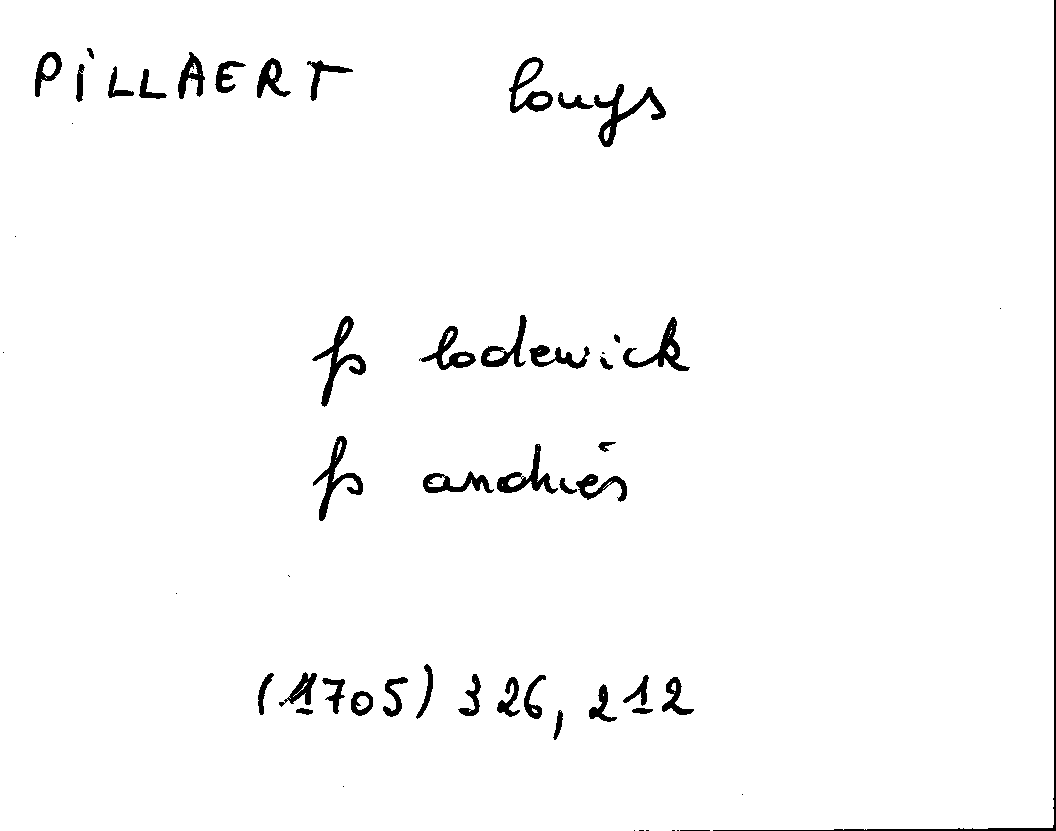 PiLLAERT louys
fs lodewick
fs andries
(1705) 326, 212